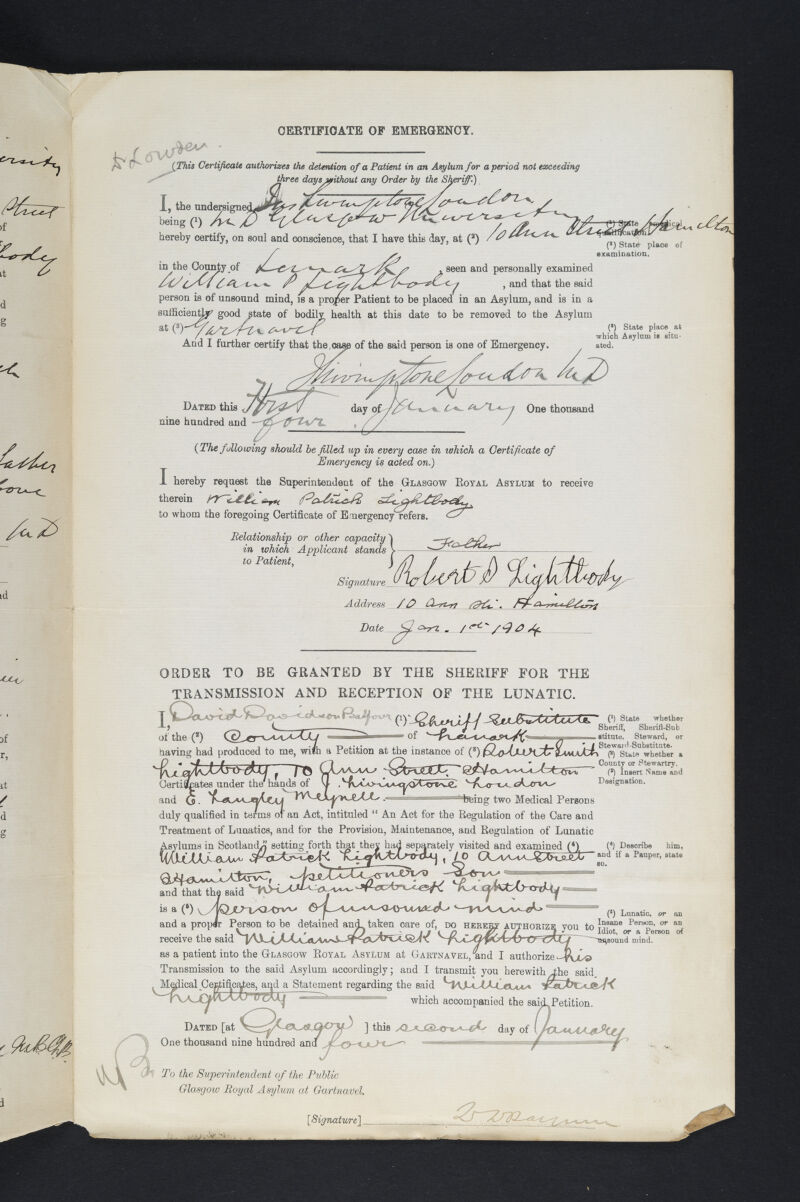 ersity
Street
of
body
at
d
g
Father
M D
nd
of
r,
at
d
g
M.B.Ch.B.
d
CERTIFICATE OF EMERGENCY.
Dr Lowden.
(This Certificate authorizes the detention of a Patient in an Asylum for a period not exceeding
three days without any Order by the Sheriff.)
I, the undersigned Jas Livingstone Loudon
being (¹) M D Glasgow University
(¹) State Medical
qualifications.
hereby certify, on soul and conscience, that I have this day, at (²) 10 Ann Street Hamilton
(²) State place of
examination.
in the County of Lanark, seen and personally examined
William P Lightbody, and that the said
person is of unsound mind, is a proper Patient to be placed in an Asylum, and is in a
sufficiently good state of bodily health at this date to be removed to the Asylum
at (³) Gartnavel
(³) State place at
which Asylum is situ-
ated.
And I further certify that the case of the said person is one of Emergency.
J Livingstone Loudon M D
DATED this First day of January One thousand
nine hundred and four.
(The following should be filled up in every case in which a Certificate of
Emergency is acted on.)
I hereby request the Superintendent of the GLASGOW ROYAL ASYLUM to receive
therein William Patrick Lightbody
to whom the foregoing Certificate of Emergency refers.
Relationship or other capacity
in which Applicant stands
to Patient, } Father
Signature Robert S Lightbody
Address 10 Ann St. Hamilton
Date Jan. 1st 1904
ORDER TO BE GRANTED BY THE SHERIFF FOR THE
TRANSMISSION AND RECEPTION OF THE LUNATIC.
I, David Davidson Balfour (¹) Sheriff Substitute
of the (²) County of Lanark
having had produced to me, with a Petition at the instance of (³) Robert Smith
Lightbody, 10 Ann Street. Hamilton
Certificates under the hands of J. Livingstone Loudon
and E. Langley Meynell. being two Medical Persons
(¹) State whether
Sheriff, Sheriff-Sub
stitute, Steward, or
Steward-Substitute.
(²) State whether a
County or Stewartry.
(³) Insert Name and
Designation.
duly qualified in terms of an Act, intituled "An Act for the Regulation of the Care and
Treatment of Lunatics, and for the Provision, Maintenance, and Regulation of Lunatic
Asylums in Scotland," setting forth that they had separately visited and examined (⁴)
William Patrick Lightbody, 10 Ann Street
Hamilton, petitioners Son
(⁴) Describe him,
and if a Pauper, state
so.
and that the said William Patrick Lightbody
is a (⁵) person of unsound mind
and a proper Person to be detained and taken care of, DO HEREBY AUTHORIZE you to
receive the said William Patrick Lightbody
(⁵) Lunatic, or an
Insane Person, or an
Idiot, or a Person of
unsound mind.
as a patient into the GLASGOW ROYAL ASYLUM at GARTNAVEL, and I authorize his
Transmission to the said Asylum accordingly; and I transmit you herewith the said
Medical Certificates, and a Statement regarding the said William Patrick
Lightbody which accompanied the said Petition.
DATED [at Glasgow ] this second day of January
One thousand nine hundred and four
To the Superintendent of the Public
Glasgow Royal Asylum at Gartnavel.
[Signature] D D Balfour